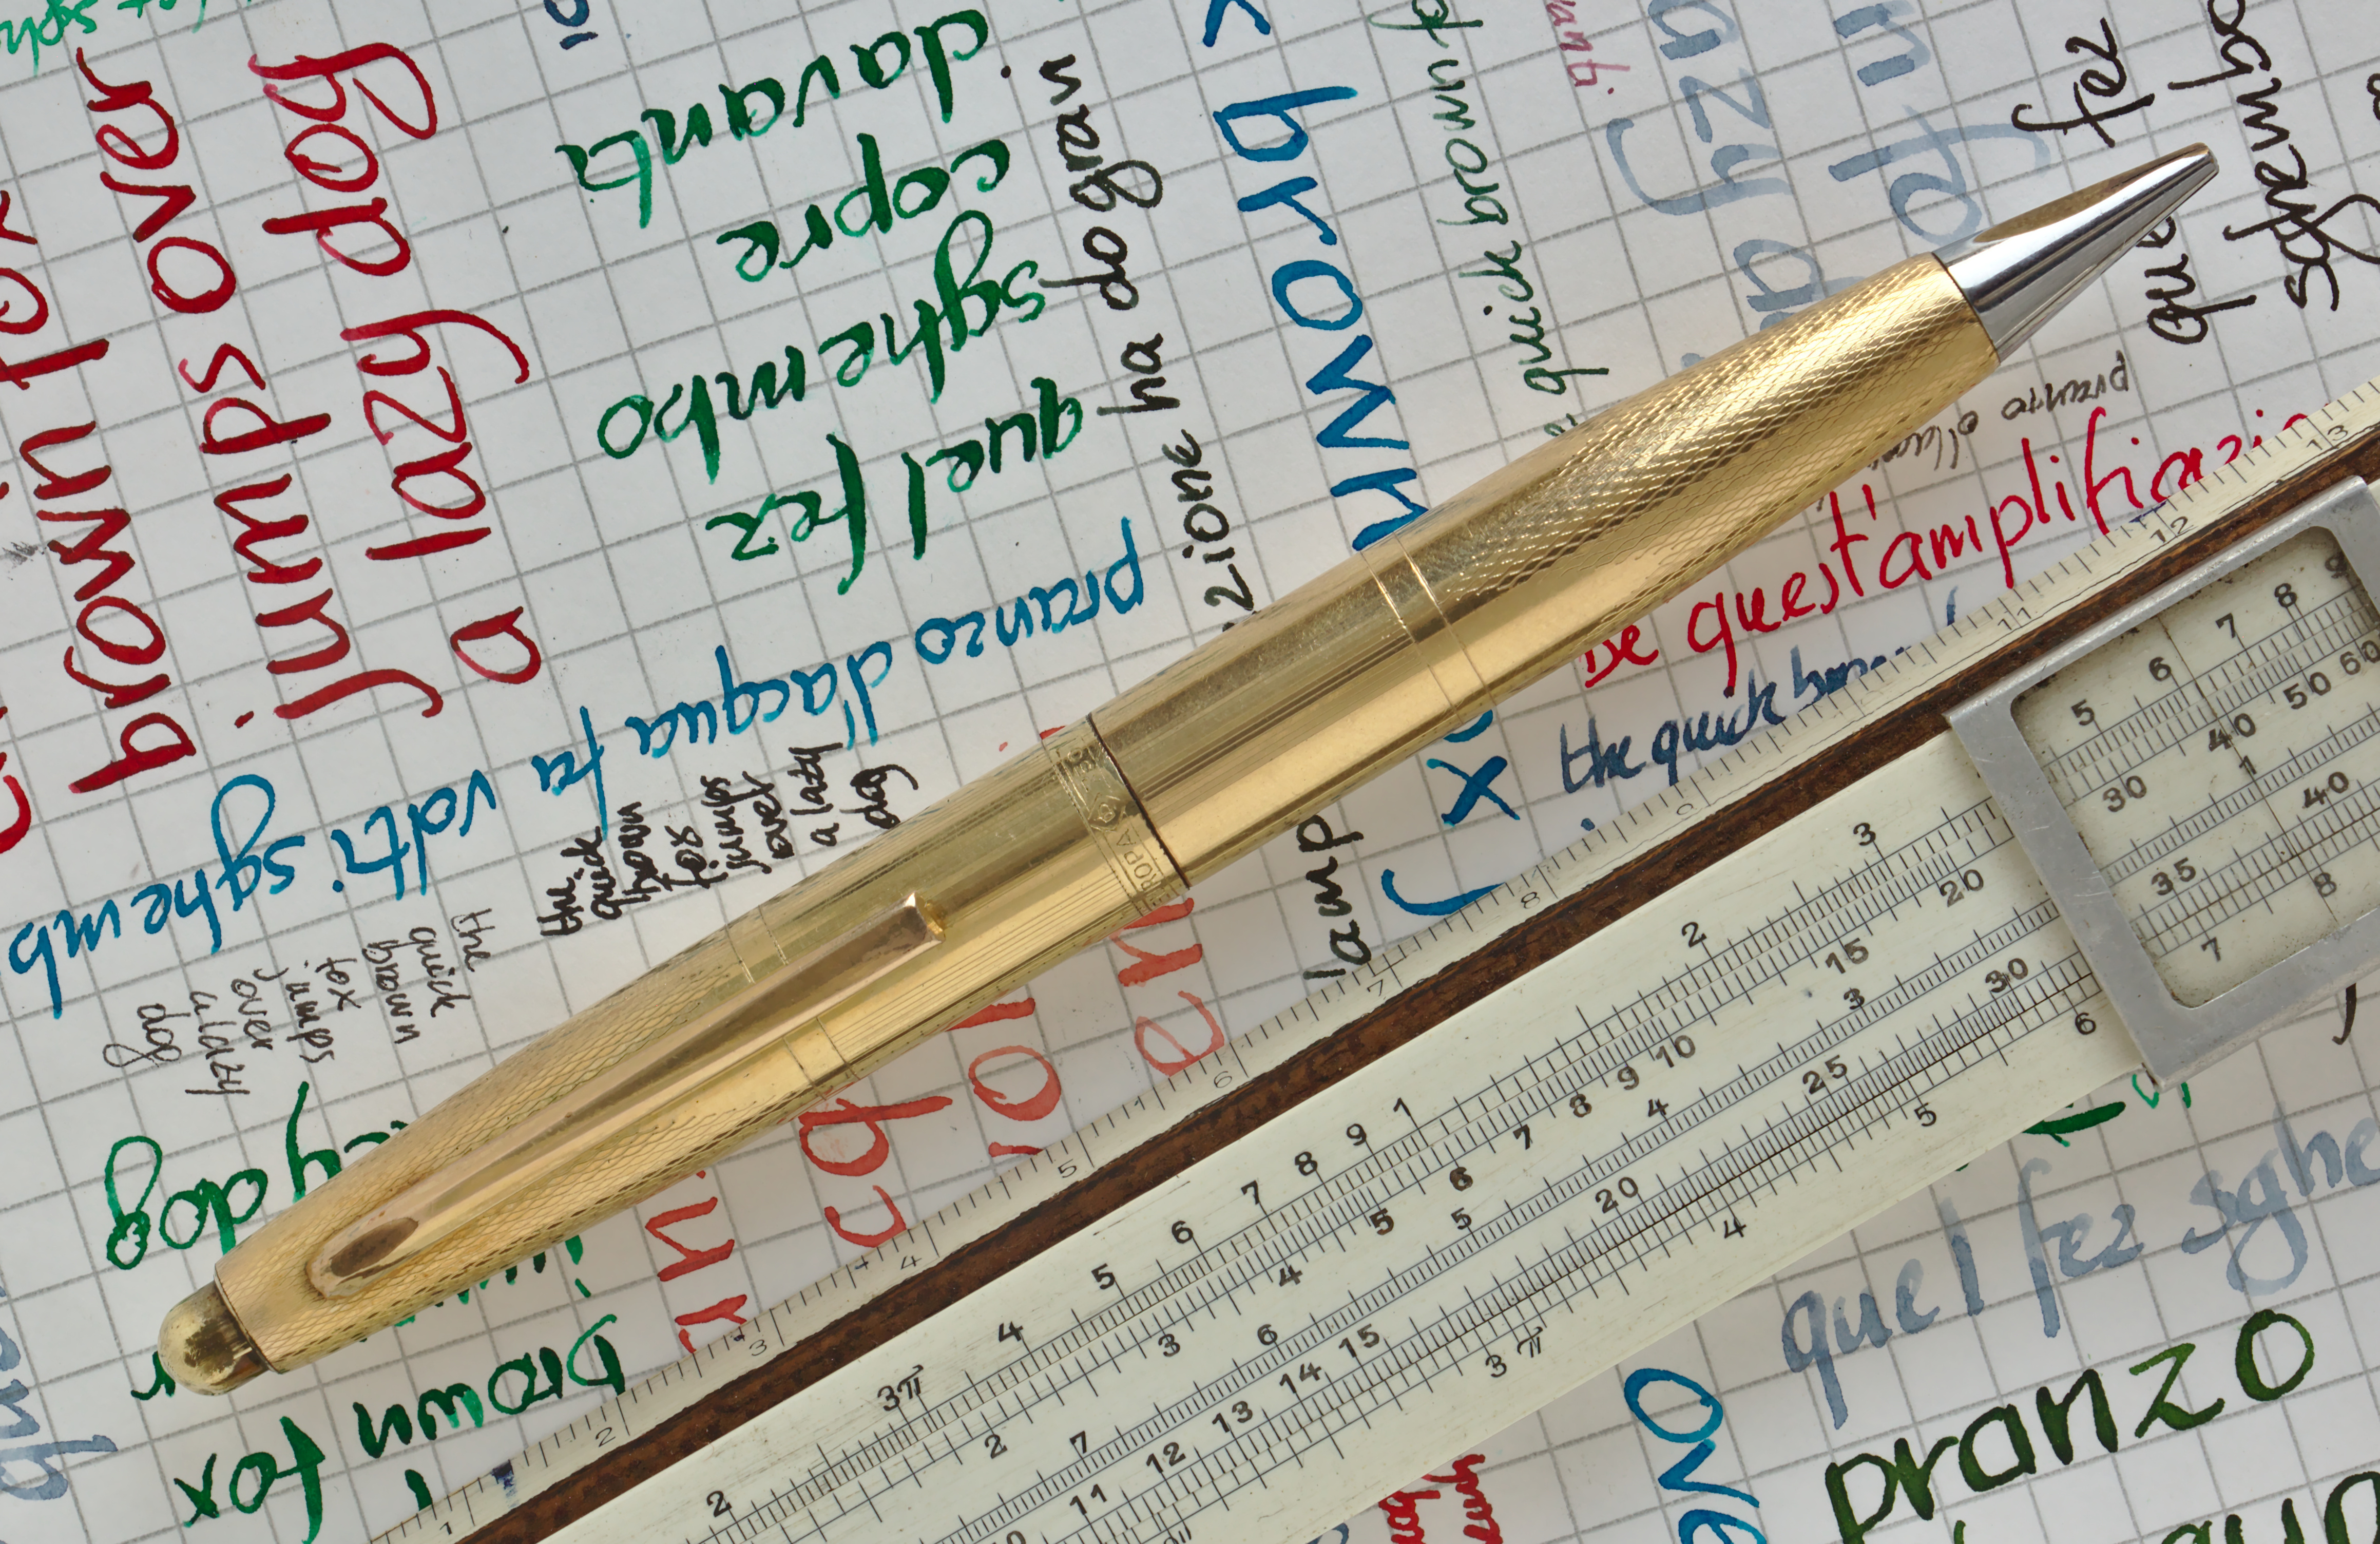 brown fox
jumps over
a lazy dog
davanti
copre
sghembo
quel fez
pranzo d'acqua fa volti sghemb
zione ha do gran
x brown
quick brown f
anti
azy d
quel fez
sghembo
pranzo d'
be quest'amplificazi
the quick brown
the
quick
brown
fox
jumps
over
a lazy
dog
the
quick
brown
fox
jumps
over
a lazy
dog
l'amp
ox j
zy dog
brown fox
EUROPA
quel fez sghe
pranzo
ove
1 2 3 4 5 6 7 8 9 11 12 13
2 3π 4 5 6 7 8 9 1 2 3 5 6 7 8 9
2 3 4 5 6 7 8 9 10 15 20 30 40 50 60
7 6 5 4 3 1
11 12 13 14 15 20 25 30 35 40
3 π 4 5 6 7 8